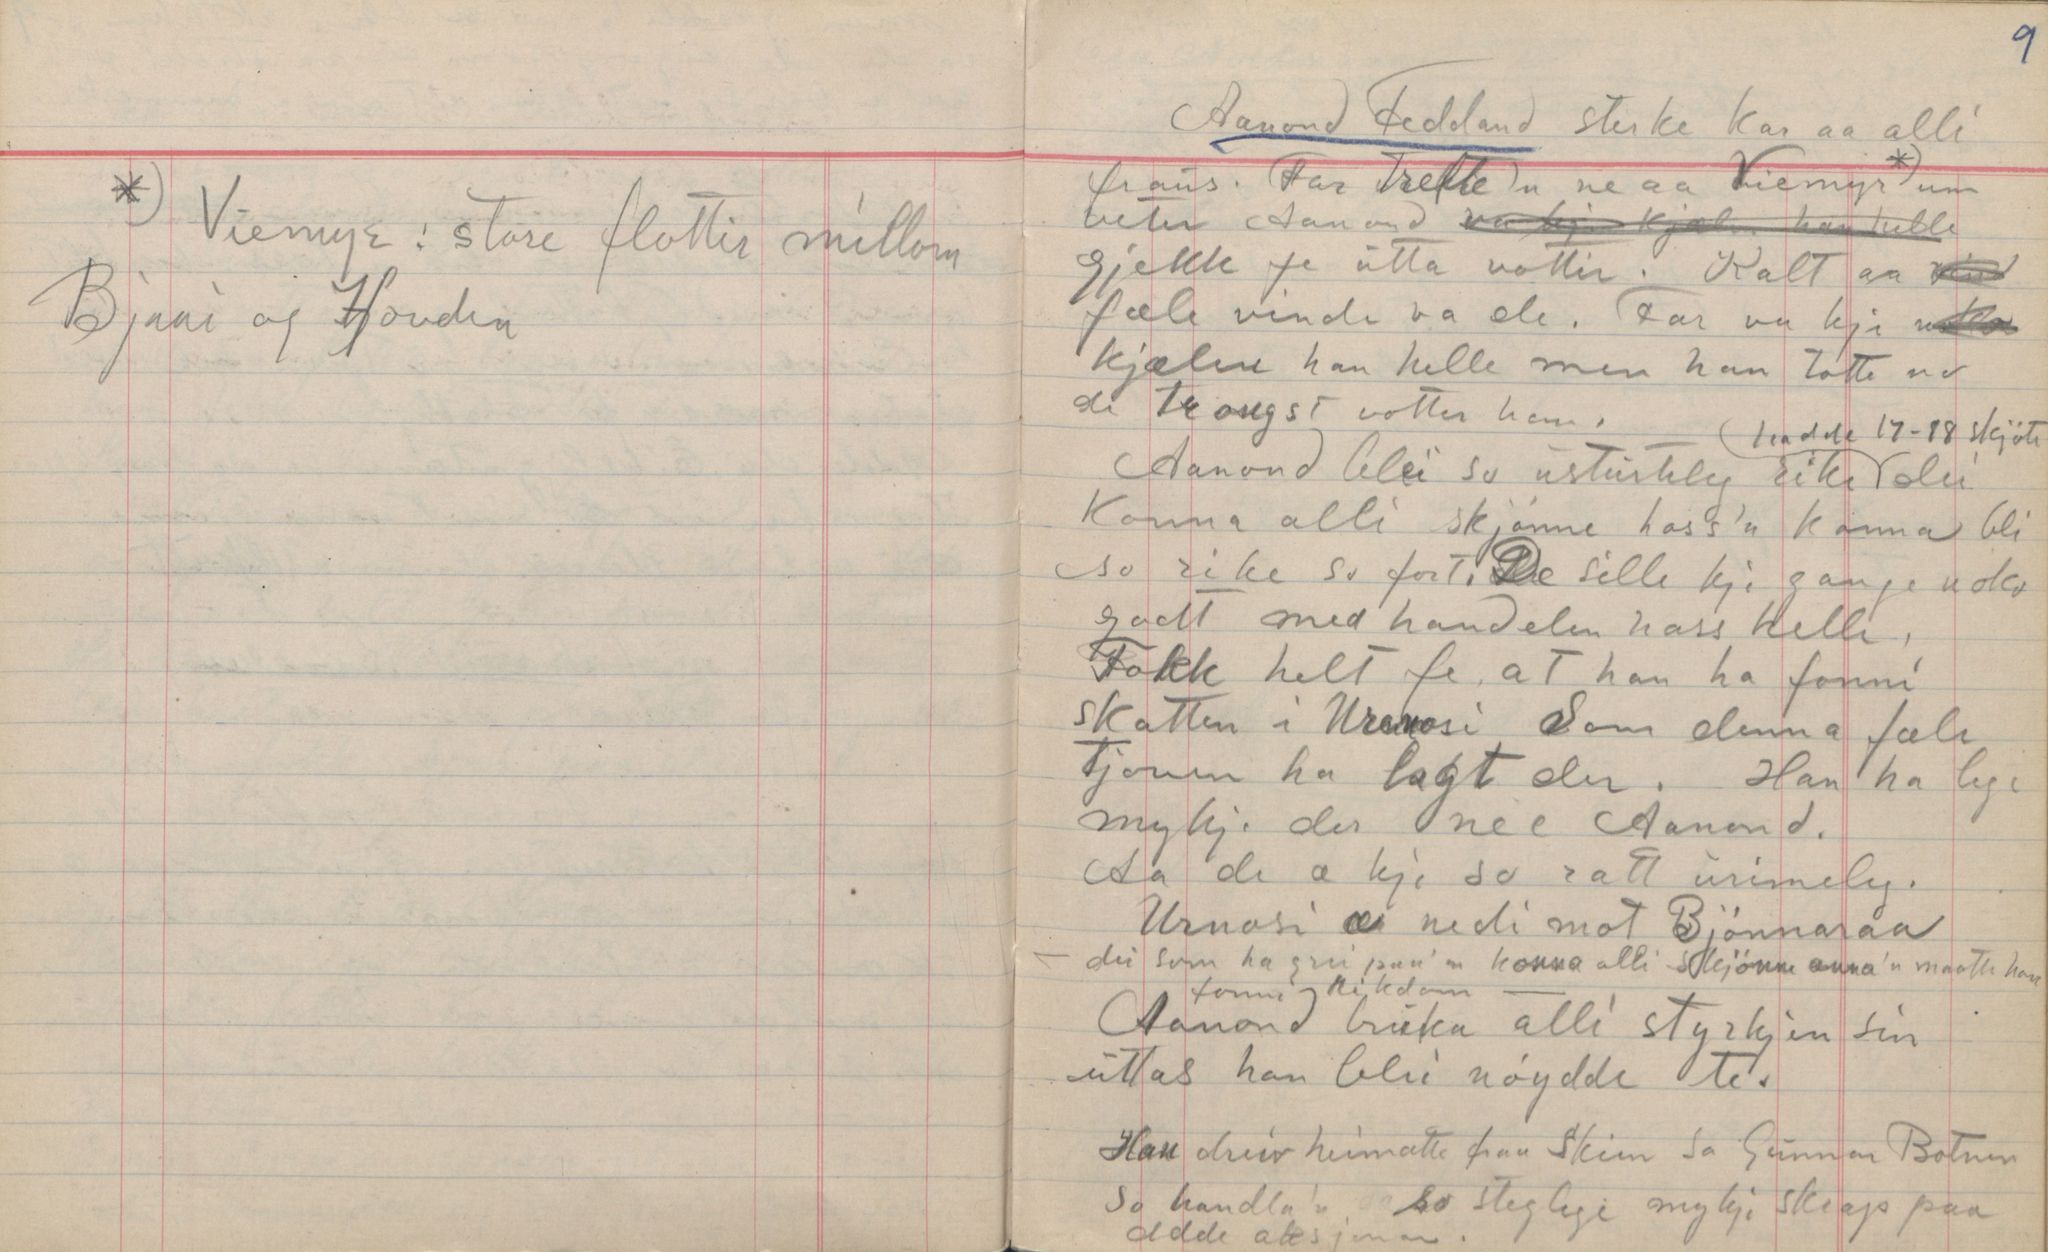 *) Viemyr: store flottir millom
Bjaai og Hovden
9
Aanond Feddland sterke kar aa alli
fraus. Far trefte'n ne aa Viemyr*) um
veter Aanond va kje kjælen han helle
gjekk fe ütta vottir. Kalt aa vind
fæle vinde va de. Far va kje noko
kjælen han helle men han totte no
de trongst votter han.
hadde 17-18 skjöte
Aanond blei so üstürteleg rike dei
konna alli skjönne hoss'n konna bli
so rike so fort. De sille kje gange noko
godt med handelen hass helle,
Fokk helt fe, at han ha fonni
skatten i Urnosi som denna fæle
tjoven ha lagt der. Han ha legi
mykje der ne e Aanond.
Aa de æ kje so ratt ürimeleg.
Urnosi æ nedi mot Bjönnaraa
– dei som ha grei paa'n konna alli skjönne anna'n maatte have
fonni rikdom –
Aanond brüka alli styrkjen sin
üttas han blei nöydde te.
Han dreiv heimatte fraa Skien sa Günnar Botnen
So handla'n so stegleg mykje skrap paa
adde aksjonar.